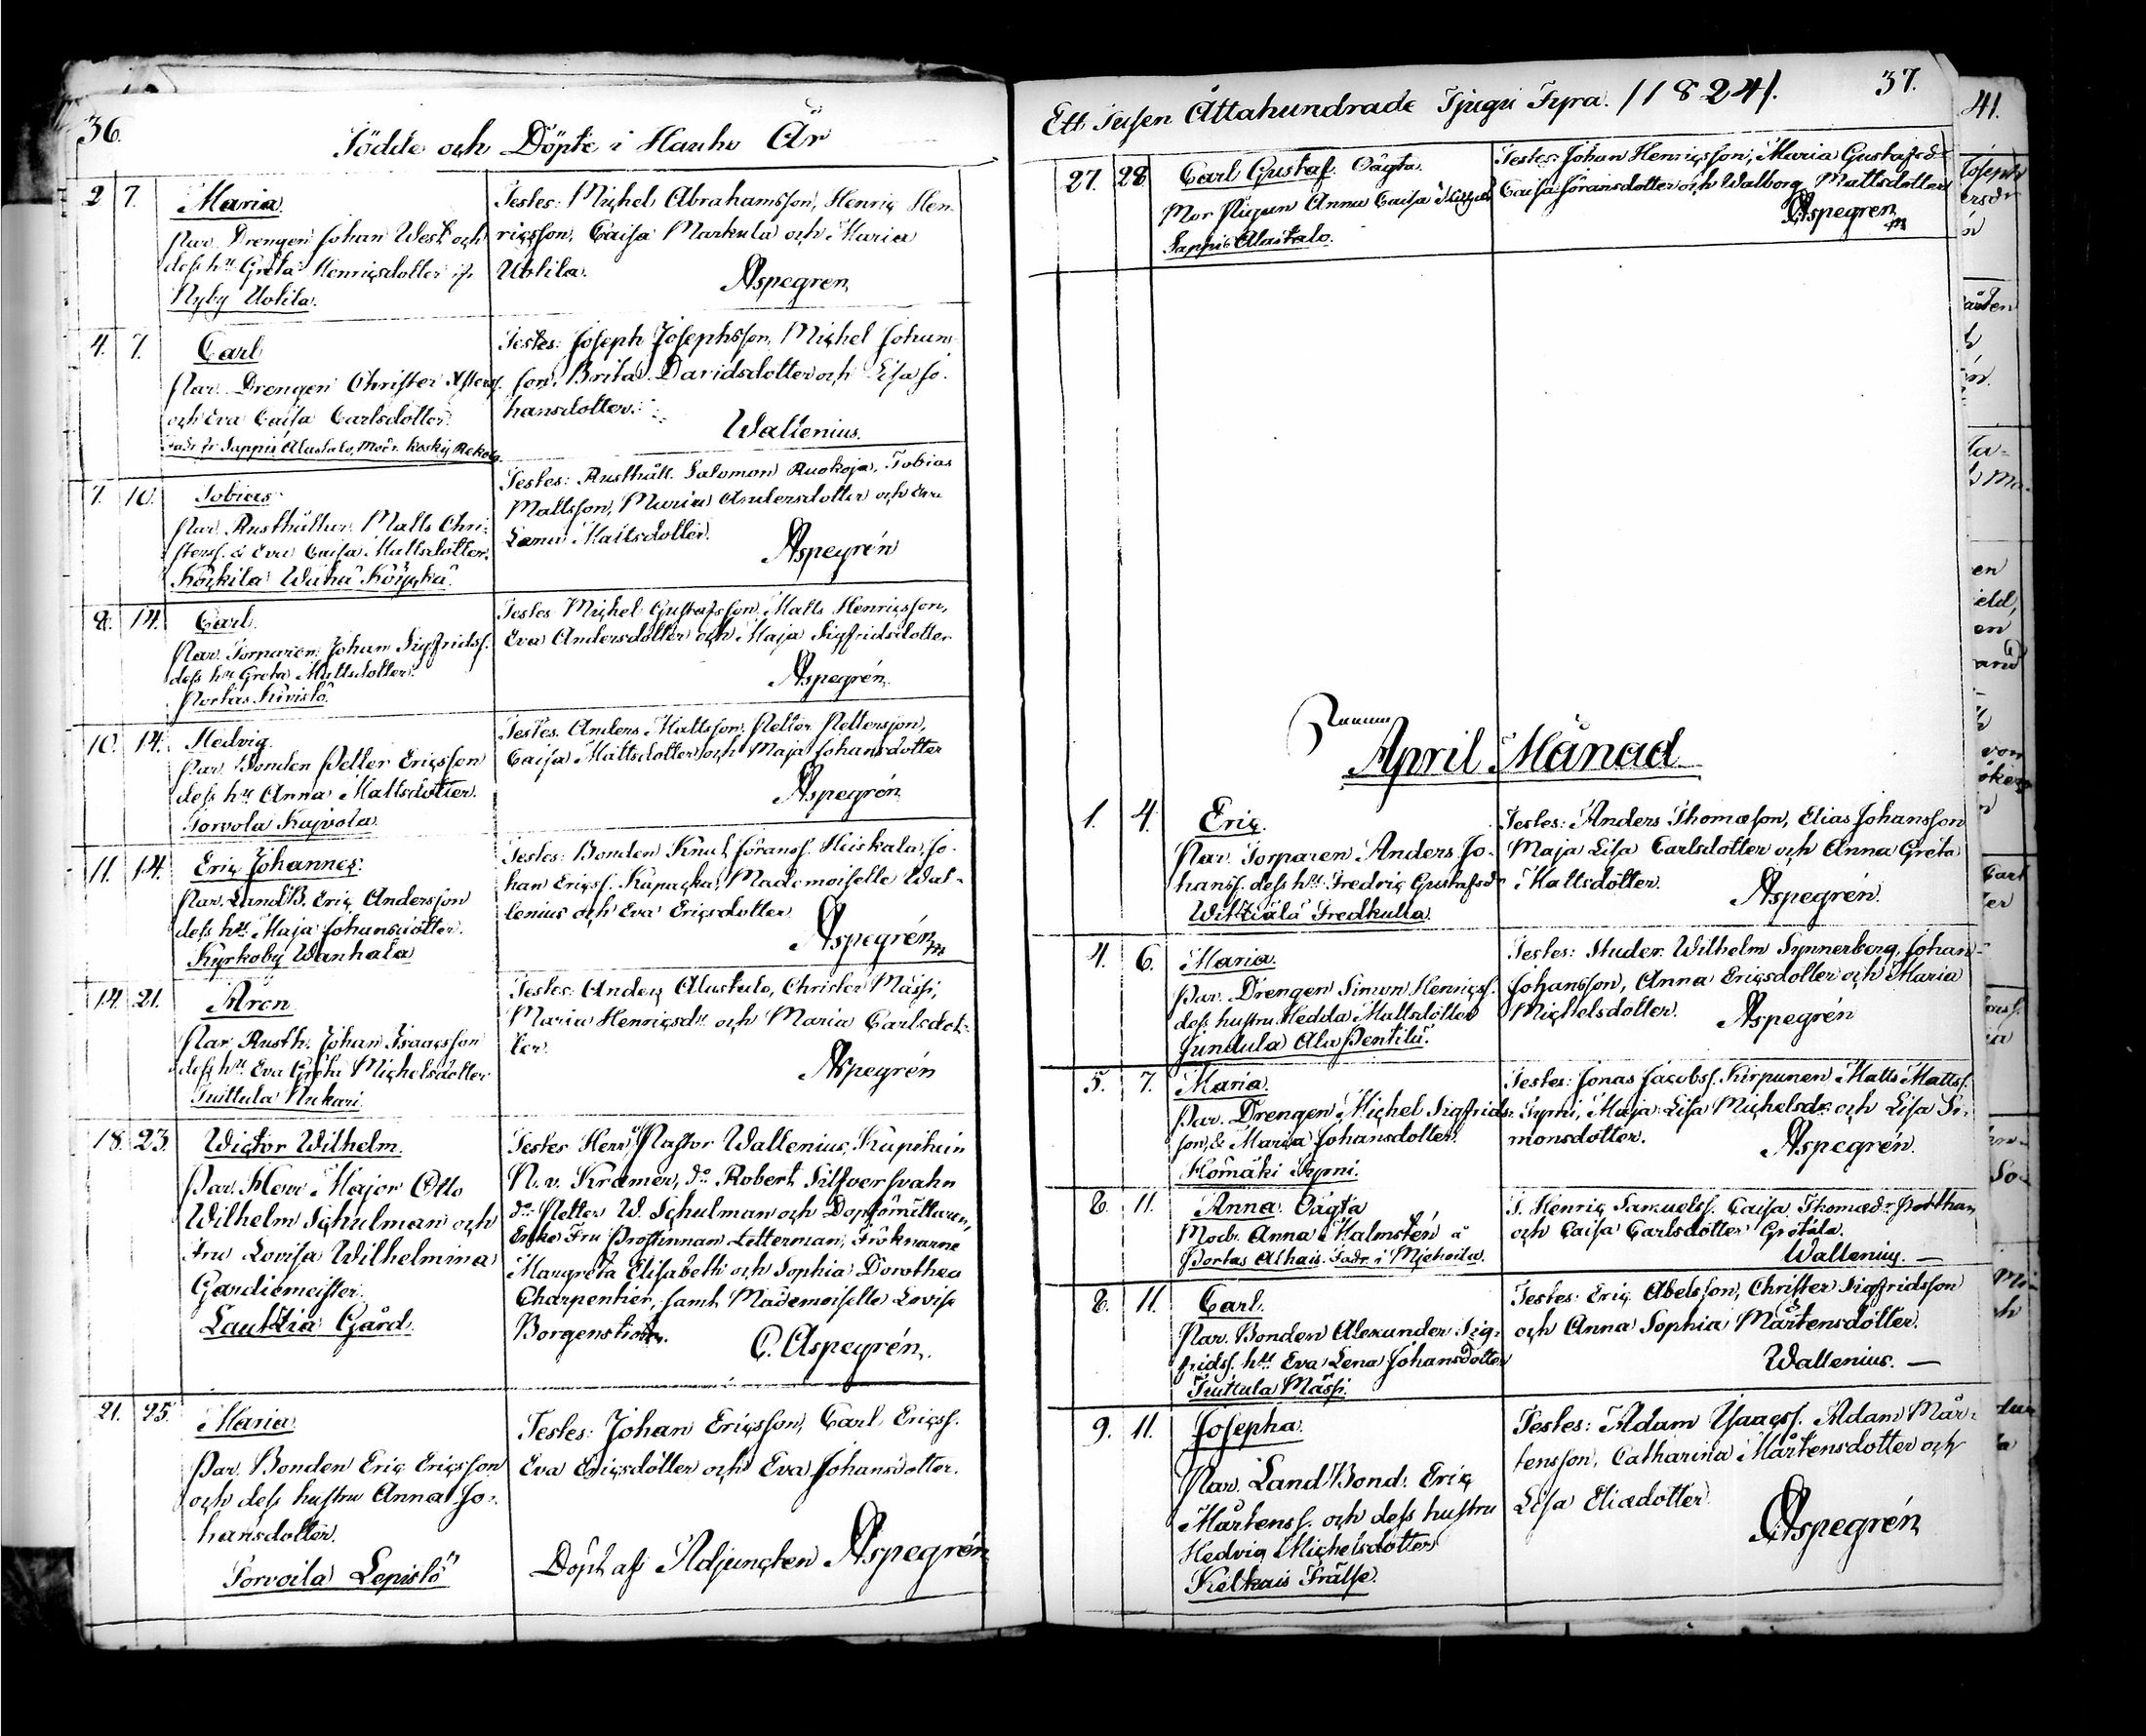 36.
Födde och Döpte i Hauho År
2 7. Maria.
Par. Drengen Johan West och
dess hu Greta Henricsdotter ifr
Nyby Uotila.
Testes: Michel Abrahamsson, Henric Hen-
ricsson, Caisa Markula och Maria
Uotila.
Aspegren
4. 7. Carl
Par. Drengen Christer
och Eva Caisa Carlsdotter.
Fadr fr Sappis Alastalo, Modr. Koski Rekola
Testes: Joseph Josephsson, Michel Johans-
son, Brita Davidsdotter och Lisa Jo-
hansdotter.
Wallenius.
7. 10. Tobias
Par. Rusthållar. Matts Chri-
stenss. & Eva Caisa Mattsdotter.
Testes: Rusthåll. Salomon Ruokoja, Tobias
Mattsson, Maria Andersdotter och
Lena Mattsdotter.
Aspegrén
8. 14. Carl.
Par. Torparen Johan Sigfridss.
dess hu Greta Mattsdotter.
Portas Kivistö.
Testes Michel Gustafsson, Matts Henricsson,
Eva Andersdotter och Maja Sigfridsdotter
Aspegrén
10. 14. Hedvig
Par. Bonden Petter Ericsson
dess hu Anna Mattsdotter.
Torvola Kajvola
Testes. Anders Mattsson, Petter Pettersson,
Caisa Mattsdotter och Maja Johansdotter
Aspegrén
11. 14. Eric Johannes.
Par. LandB. Eric Andersson
dess hu Maja Johansdotter.
Kyrkoby Wanhala
Testes: Bonden Knut Göranss. Heiskala, Jo-
han Ericss. Kupacka, Mademoiselle Wal-
lenius och Eva Ericsdotter
Aspegrén
14. 21. Aron
Par. Rusth. Johan Isaacsson
dess hu Eva Greta Michelsdotter
Tuittula Nukari.
Testes. Anders Alastalo, Christer Mässi,
Maria Henricsdr och Maria Carlsdot-
ter.
Aspegrén
18. 23. Wictor Wilhelm.
Par. Herr Major Otto
Wilhelm Schulman och
Fru Lovisa Wilhelmina
Gardiemeister.
Lauttia Gård.
Testes Herr Pastor Wallenius, Kapitain
N. v. Kræmer, do Robert Silfversvahn
do Petter W. Schulman och
Enke Fru Prostinnan Letterman, Fröknarne
Margreta Elisabeth och Sophia Dorothea
Charpentier, samt Mademoiselle Lovisa
C. Aspegrén.
21. 25. Maria
Par. Bonden Eric Ericsson
och dess hustru Anna Jo-
hansdotter.
Torvoila Lepistö
Testes: Johan Ericsson, Carl Ericss.
Eva Ericsdotter och Eva Johansdotter.
Döpt af Adjuncten Aspegrén
Ett Tusen Åttahundrade Tjugu Fyra. /1824/.
37.
27. 28. Carl Gustaf. Oägta.
Mor Pigan Anna Caisa
Sappis Alastalo.
Testes: Johan Henricsson, Maria Gustafsdr
Caisa Göransdotter och Walborg Mattsdotter
Aspegren
April Månad
1. 4. Eric.
Par. Torparen Anders Jo-
hanss. dess hu Fredric Gustafsdr
Wittiälä Fredkulla.
Testes: Anders Thomæson, Elias Johansson
Maja Lisa Carlsdotter och Anna Greta
Mattsdotter.
Aspegrén.
4. 6. Maria.
Par. Drengen Simon Henricss.
dess hustru Hedda Mattsdotter
Jundula Ala Pentilä.
Testes: Studer. Wilhelm Synnerberg, Johan
Johansson, Anna Ericsdotter och Maria
Michelsdotter.
Aspegrén
5. 7. Maria.
Par. Drengen Michel Sigfrids-
son, & Maria Johansdotter.
Hömäki Syrni.
Testes: Jonas Jacobss. Kirpunen Matts Mattss.
Syrni, Maja Lisa Michelsdr och Lisa Si-
monsdotter.
Aspegrén.
8. 11. Anna. Oägta
Modr. Anna Malmstén å
Portas Alhais. Fadr. i Miehoila.
T. Henric Samuelss. Caisa Thomædr Porthan
och Caisa Carlsdotter Grötala.
Wallenius.
8. 11. Carl.
Par. Bonden Alexander Sig-
fridss. hu Eva Lena Johansdotter
Tuittula Mässi.
Testes: Eric Abelsson, Christer Sigfridsson
och Anna Sophia Mårtensdotter.
Wallenius.
9. 11. Josepha.
Par. Land Bond. Eric
Mårtenss. och dess hustru
Hedvig Michelsdotter
Kelkais Frälse.
Testes: Adam Isaacss. Adam Mår-
tensson, Catharina Mårtensdotter och
Lisa Eliædotter.
Aspegrén
41.